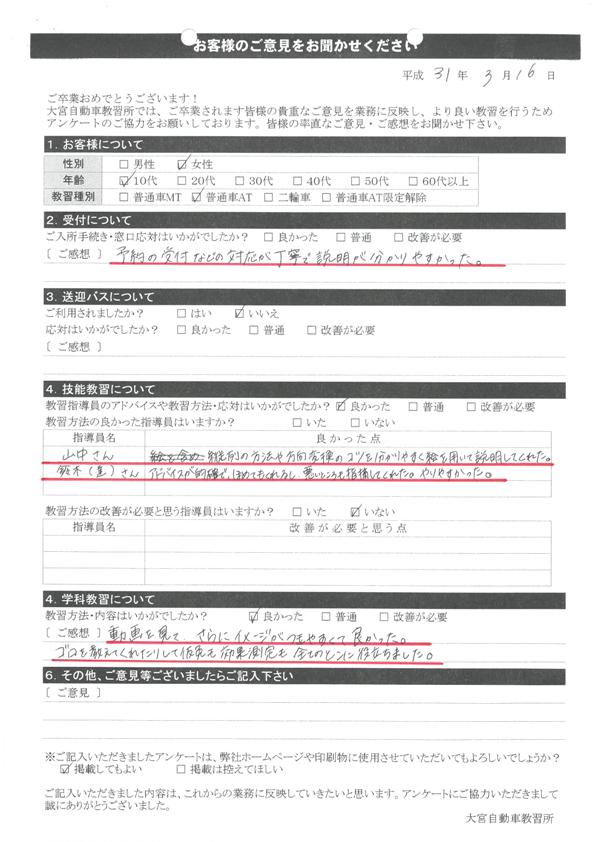 お客様のご意見をお聞かせください
平成 31 年 3 月 16 日
ご卒業おめでとうございます!
大宮自動車教習所では、ご卒業されます皆様の貴重なご意見を業務に反映し、より良い教習を行うため
アンケートのご協力をお願いしております。皆様の率直なご意見・ご感想をお聞かせ下さい。
1. お客様について
性別 □ 男性 ☑ 女性
年齢 ☑ 10代 □ 20代 □ 30代 □ 40代 □ 50代 □ 60代以上
教習種別 □ 普通車MT ☑ 普通車AT □ 二輪車 □ 普通車AT限定解除
2. 受付について
ご入所手続き・窓口応対はいかがでしたか? □ 良かった □ 普通 □ 改善が必要
〔 ご感想 〕 予約の受付などの対応が丁寧で説明が分かりやすかった。
3. 送迎バスについて
ご利用されましたか? □ はい ☑ いいえ
応対はいかがでしたか? □ 良かった □ 普通 □ 改善が必要
〔 ご感想 〕
4. 技能教習について
教習指導員のアドバイスや教習方法・応対はいかがでしたか? ☑ 良かった □ 普通 □ 改善が必要
教習方法の良かった指導員はいますか? □ いた □ いない
指導員名 良かった点
山中さん の方法や方向変換のコツを分かりやすく絵を用いて説明してくれた。
鈴木(圭)さん アドバイスが的確で、ほめてもくれるし、悪いところも指摘してくれた。やりやすかった。
教習方法の改善が必要と思う指導員はいますか? □ いた ☑ いない
指導員名 改善が必要と思う点
4. 学科教習について
教習方法・内容はいかがでしたか? ☑ 良かった □ 普通 □ 改善が必要
〔 ご感想 〕 動画を見て、さらにイメージがつきやすくて良かった。
ゴロを教えてくれたりして仮免も効果測定も全てのとこに役立ちました。
6. その他、ご意見等ございましたらご記入下さい
〔 ご意見 〕
※ご記入いただきましたアンケートは、弊社ホームページや印刷物に使用させていただいてもよろしいでしょうか?
☑ 掲載してもよい □ 掲載は控えてほしい
ご記入いただきました内容は、これからの業務に反映していきたいと思います。アンケートにご協力いただきまして
誠にありがとうございました。
大宮自動車教習所